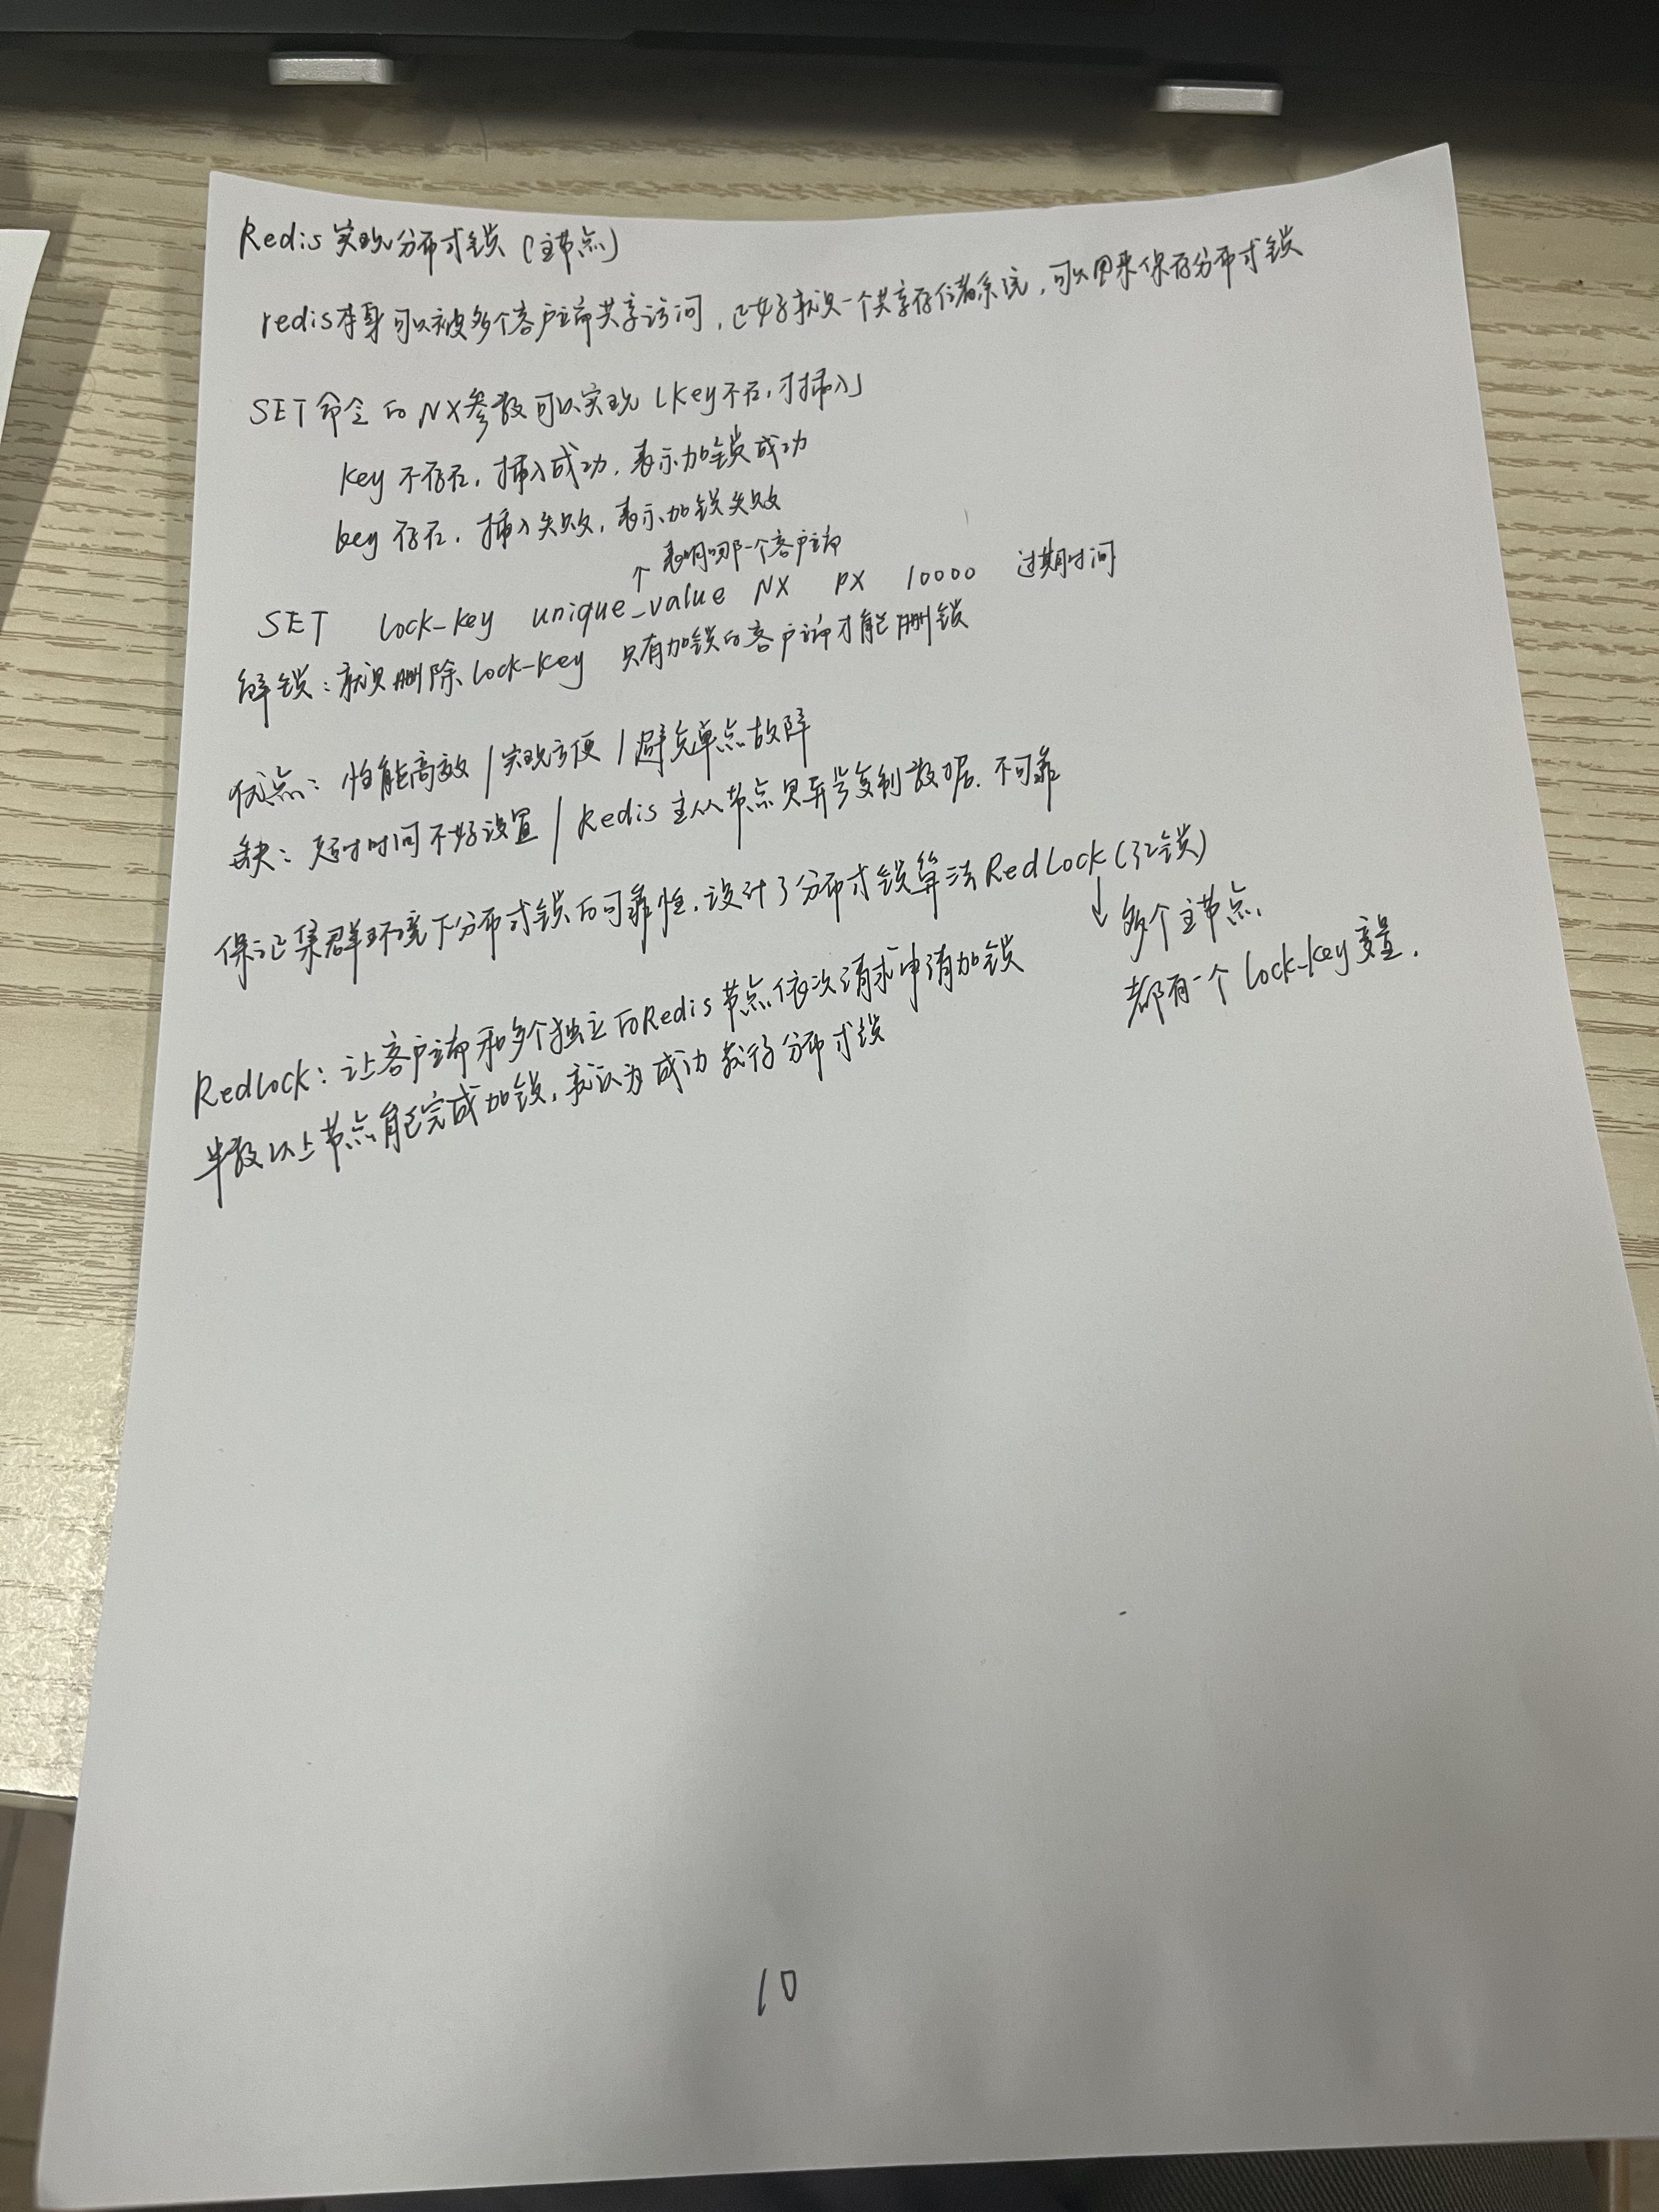 Redis 实现分布式锁 (主节点)
redis本身可以被多个客户端共享访问, 正好就是一个共享存储系统, 可以用来保存分布式锁
SET 命令的 NX参数可以实现「key不在, 才插入」
key 不存在, 插入成功, 表示加锁成功
key 存在, 插入失败, 表示加锁失败
↑ 表明哪一个客户端
SET lock_key unique_value NX PX 10000 过期时间
解锁: 就是删除 lock-key 只有加锁的客户端才能删锁
优点: 性能高效 / 实现方便 / 避免单点故障
缺: 超时时间不好设置 / Redis 主从节点是异步复制数据. 不可靠
保证集群环境下分布式锁的可靠性, 设计了分布式锁算法 RedLock (红锁)
↓ 多个主节点,
都有一个 lock-key 变量.
RedLock: 让客户端和多个独立的Redis 节点依次请求申请加锁
半数以上节点能完成加锁, 就认为成功获得分布式锁
10